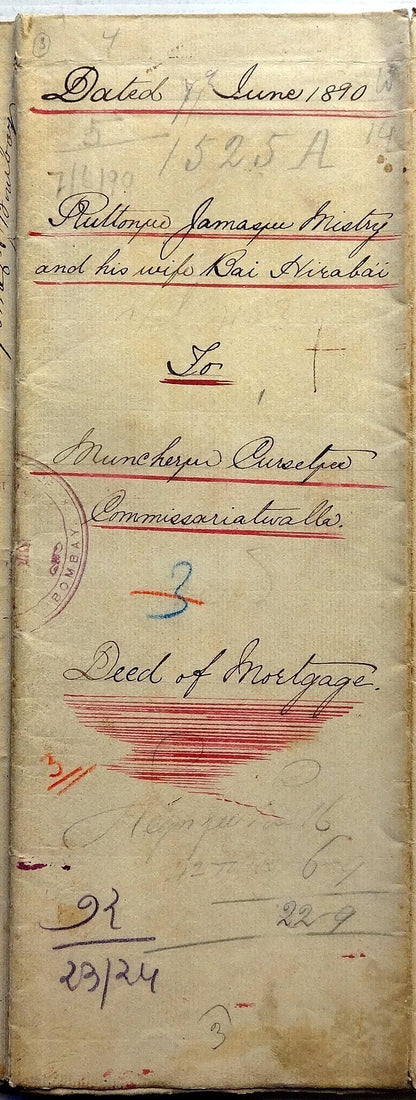 3
4
Dated 7th June 1890
5
1525 A
14
7/6/90
Ruttonjee Jamasjee Mistry
and his wife Bai Hirabai
To
Muncherjee Cursetjee
Commissariatwalla.
BOMBAY
3
Deed of Mortgage.
3
16
22 9
23/24
3